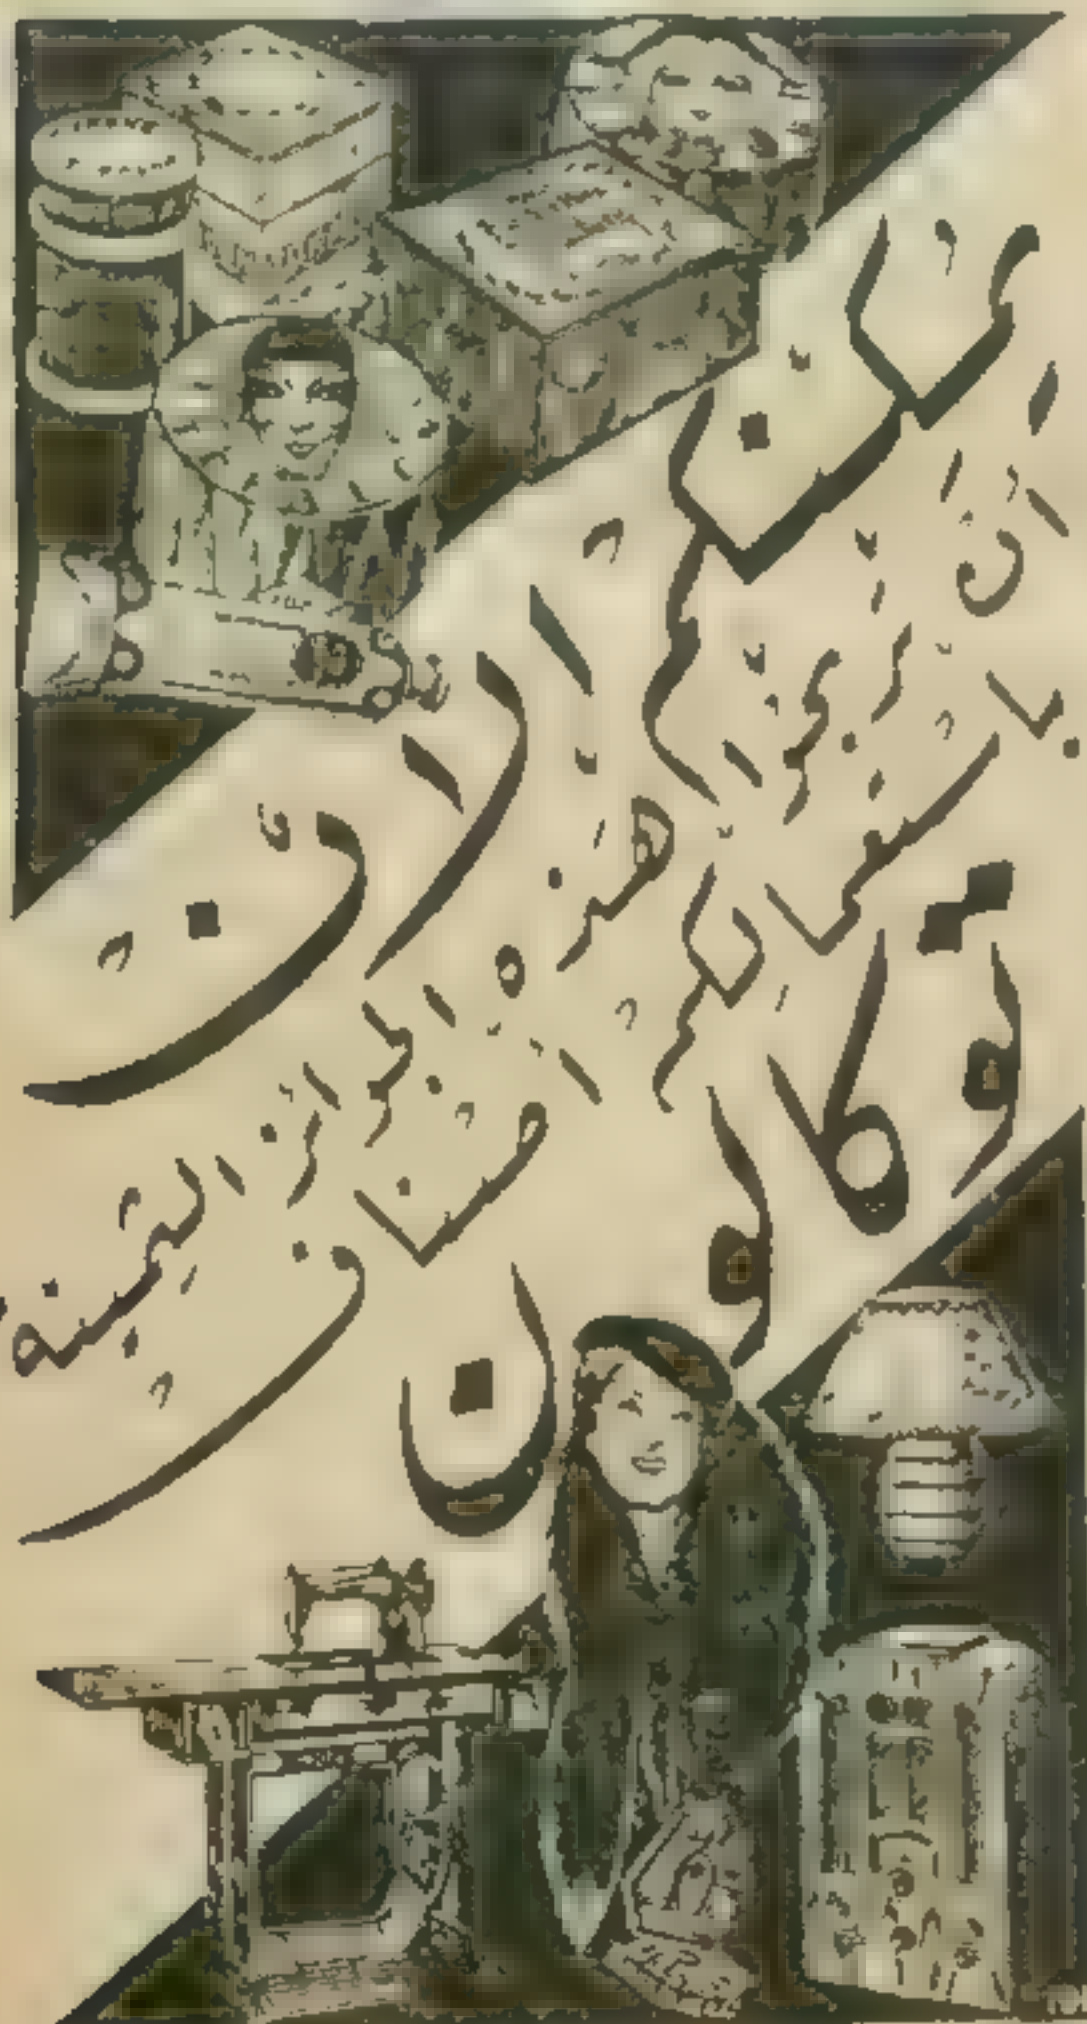 يمكنكم الان
ان تحرزوا هذه الجوائز الثمينة
باستعمالكم اصناف
توكالون